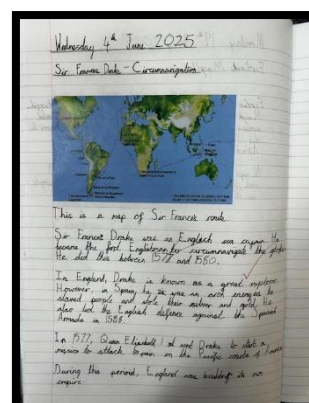 Wednesday 4th June 2025
Sir Francis Drake - Circumnavigation
This is a map of Sir Francis' route.
Sir Francis Drake was an English sea captain. He
became the first Englishman to circumnavigate the globe.
He did this between 1577 and 1580.
In England, Drake is known as a great explorer.
However, in Spain, he was an arch enemy as he
slaved people and stole their silver and gold. He
also led the English defence against the Spanish
Armada in 1588.
In 1577, Queen Elizabeth I sent Drake to start a
mission to attack Spain on the Pacific coasts of America
During this period, England was building its own
empire.